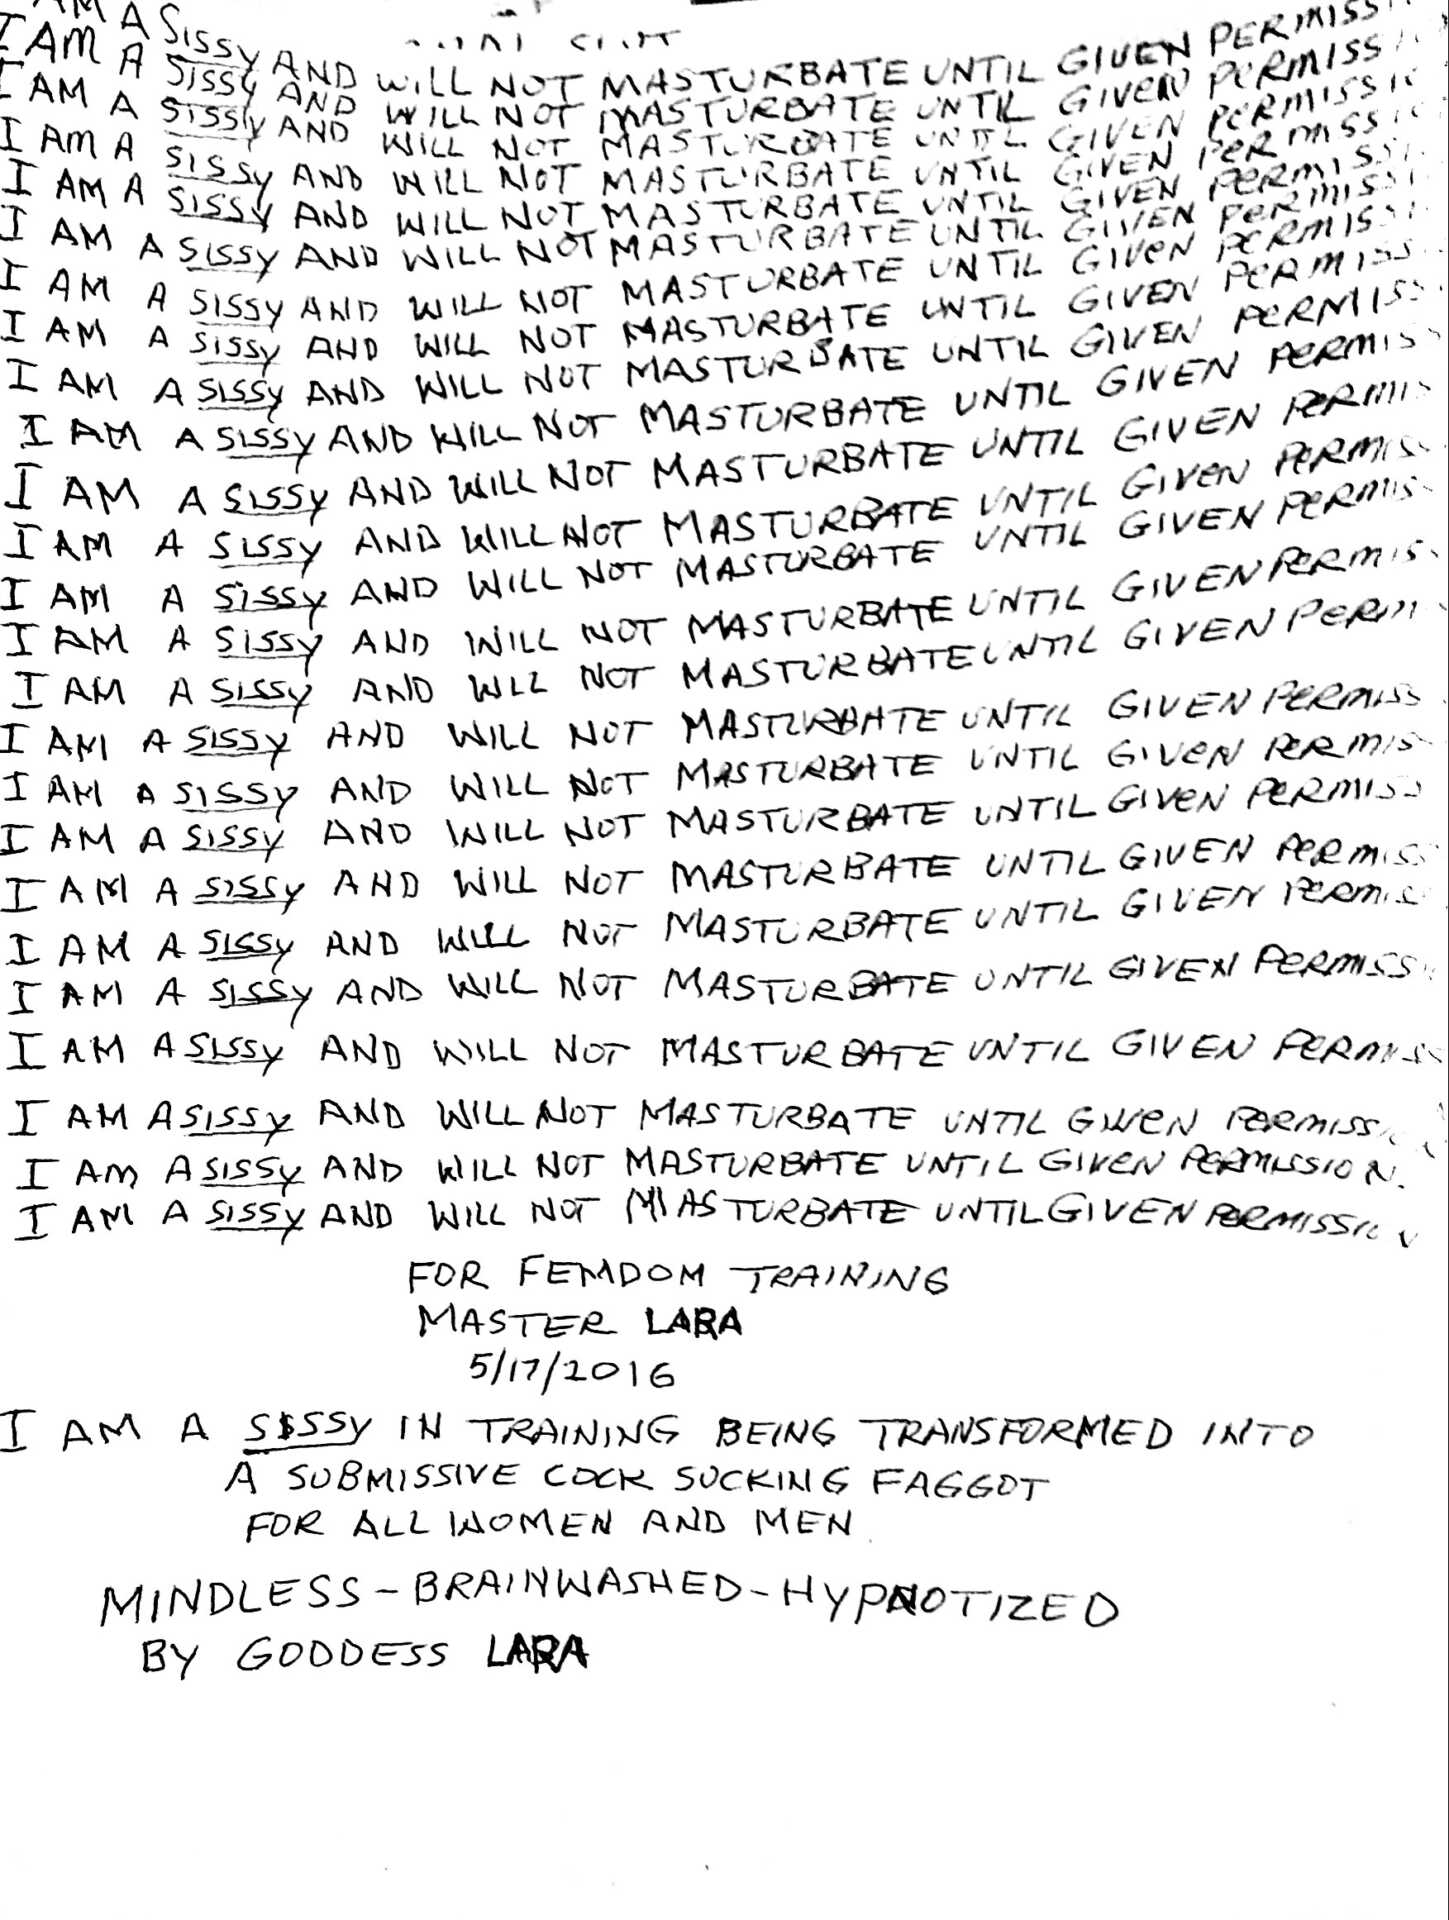 AM A SISSY AND WILL NOT MASTURBATE UNTIL GIVEN PERMISS
I AM A SISSY AND WILL NOT MASTURBATE UNTIL GIVEN PERMISS
I AM A SISSY AND WILL NOT MASTURBATE UNTIL GIVEN PERMISSI
I AM A SISSY AND WILL NOT MASTURBATE UNTIL GIVEN PERMISS
I AM A SISSY AND WILL NOT MASTURBATE UNTIL GIVEN PERMISS
I AM A SISSY AND WILL NOT MASTURBATE UNTIL GIVEN PERMISS
I AM A SISSY AND WILL NOT MASTURBATE UNTIL GIVEN PERMISS
I AM A SISSY AND WILL NOT MASTURBATE UNTIL GIVEN PERMISS
I AM A SISSY AND WILL NOT MASTURBATE UNTIL GIVEN PERMIS
I AM A SISSY AND WILL NOT MASTURBATE UNTIL GIVEN PERMIS
I AM A SISSY AND WILL NOT MASTURBATE UNTIL GIVEN PERMIS
I AM A SISSY AND WILL NOT MASTURBATE UNTIL GIVEN PERMIS
I AM A SISSY AND WILL NOT MASTURBATE UNTIL GIVEN PERMIS
I AM A SISSY AND WILL NOT MASTURBATE UNTIL GIVEN PERMIS
I AM A SISSY AND WILL NOT MASTURBATE UNTIL GIVEN PERMI
I AM A SISSY AND WILL NOT MASTURBATE UNTIL GIVEN PERMISS
I AM A SISSY AND WILL NOT MASTURBATE UNTIL GIVEN PERMIS
I AM A SISSY AND WILL NOT MASTURBATE UNTIL GIVEN PERMISS
I AM A SISSY AND WILL NOT MASTURBATE UNTIL GIVEN PERMISS
I AM A SISSY AND WILL NOT MASTURBATE UNTIL GIVEN PERMIS
I AM A SISSY AND WILL NOT MASTURBATE UNTIL GIVEN PERMISS
I AM A SISSY AND WILL NOT MASTURBATE UNTIL GIVEN PERMISS
I AM A SISSY AND WILL NOT MASTURBATE UNTIL GIVEN PERMISS
I AM A SISSY AND WILL NOT MASTURBATE UNTIL GIVEN PERMISSION.
I AM A SISSY AND WILL NOT MASTURBATE UNTIL GIVEN PERMISSION
FOR FEMDOM TRAINING
MASTER LARA
5/17/2016
I AM A SISSY IN TRAINING BEING TRANSFORMED INTO
A SUBMISSIVE COCK SUCKING FAGGOT
FOR ALL WOMEN AND MEN
MINDLESS-BRAINWASHED-HYPNOTIZED
BY GODDESS LARA